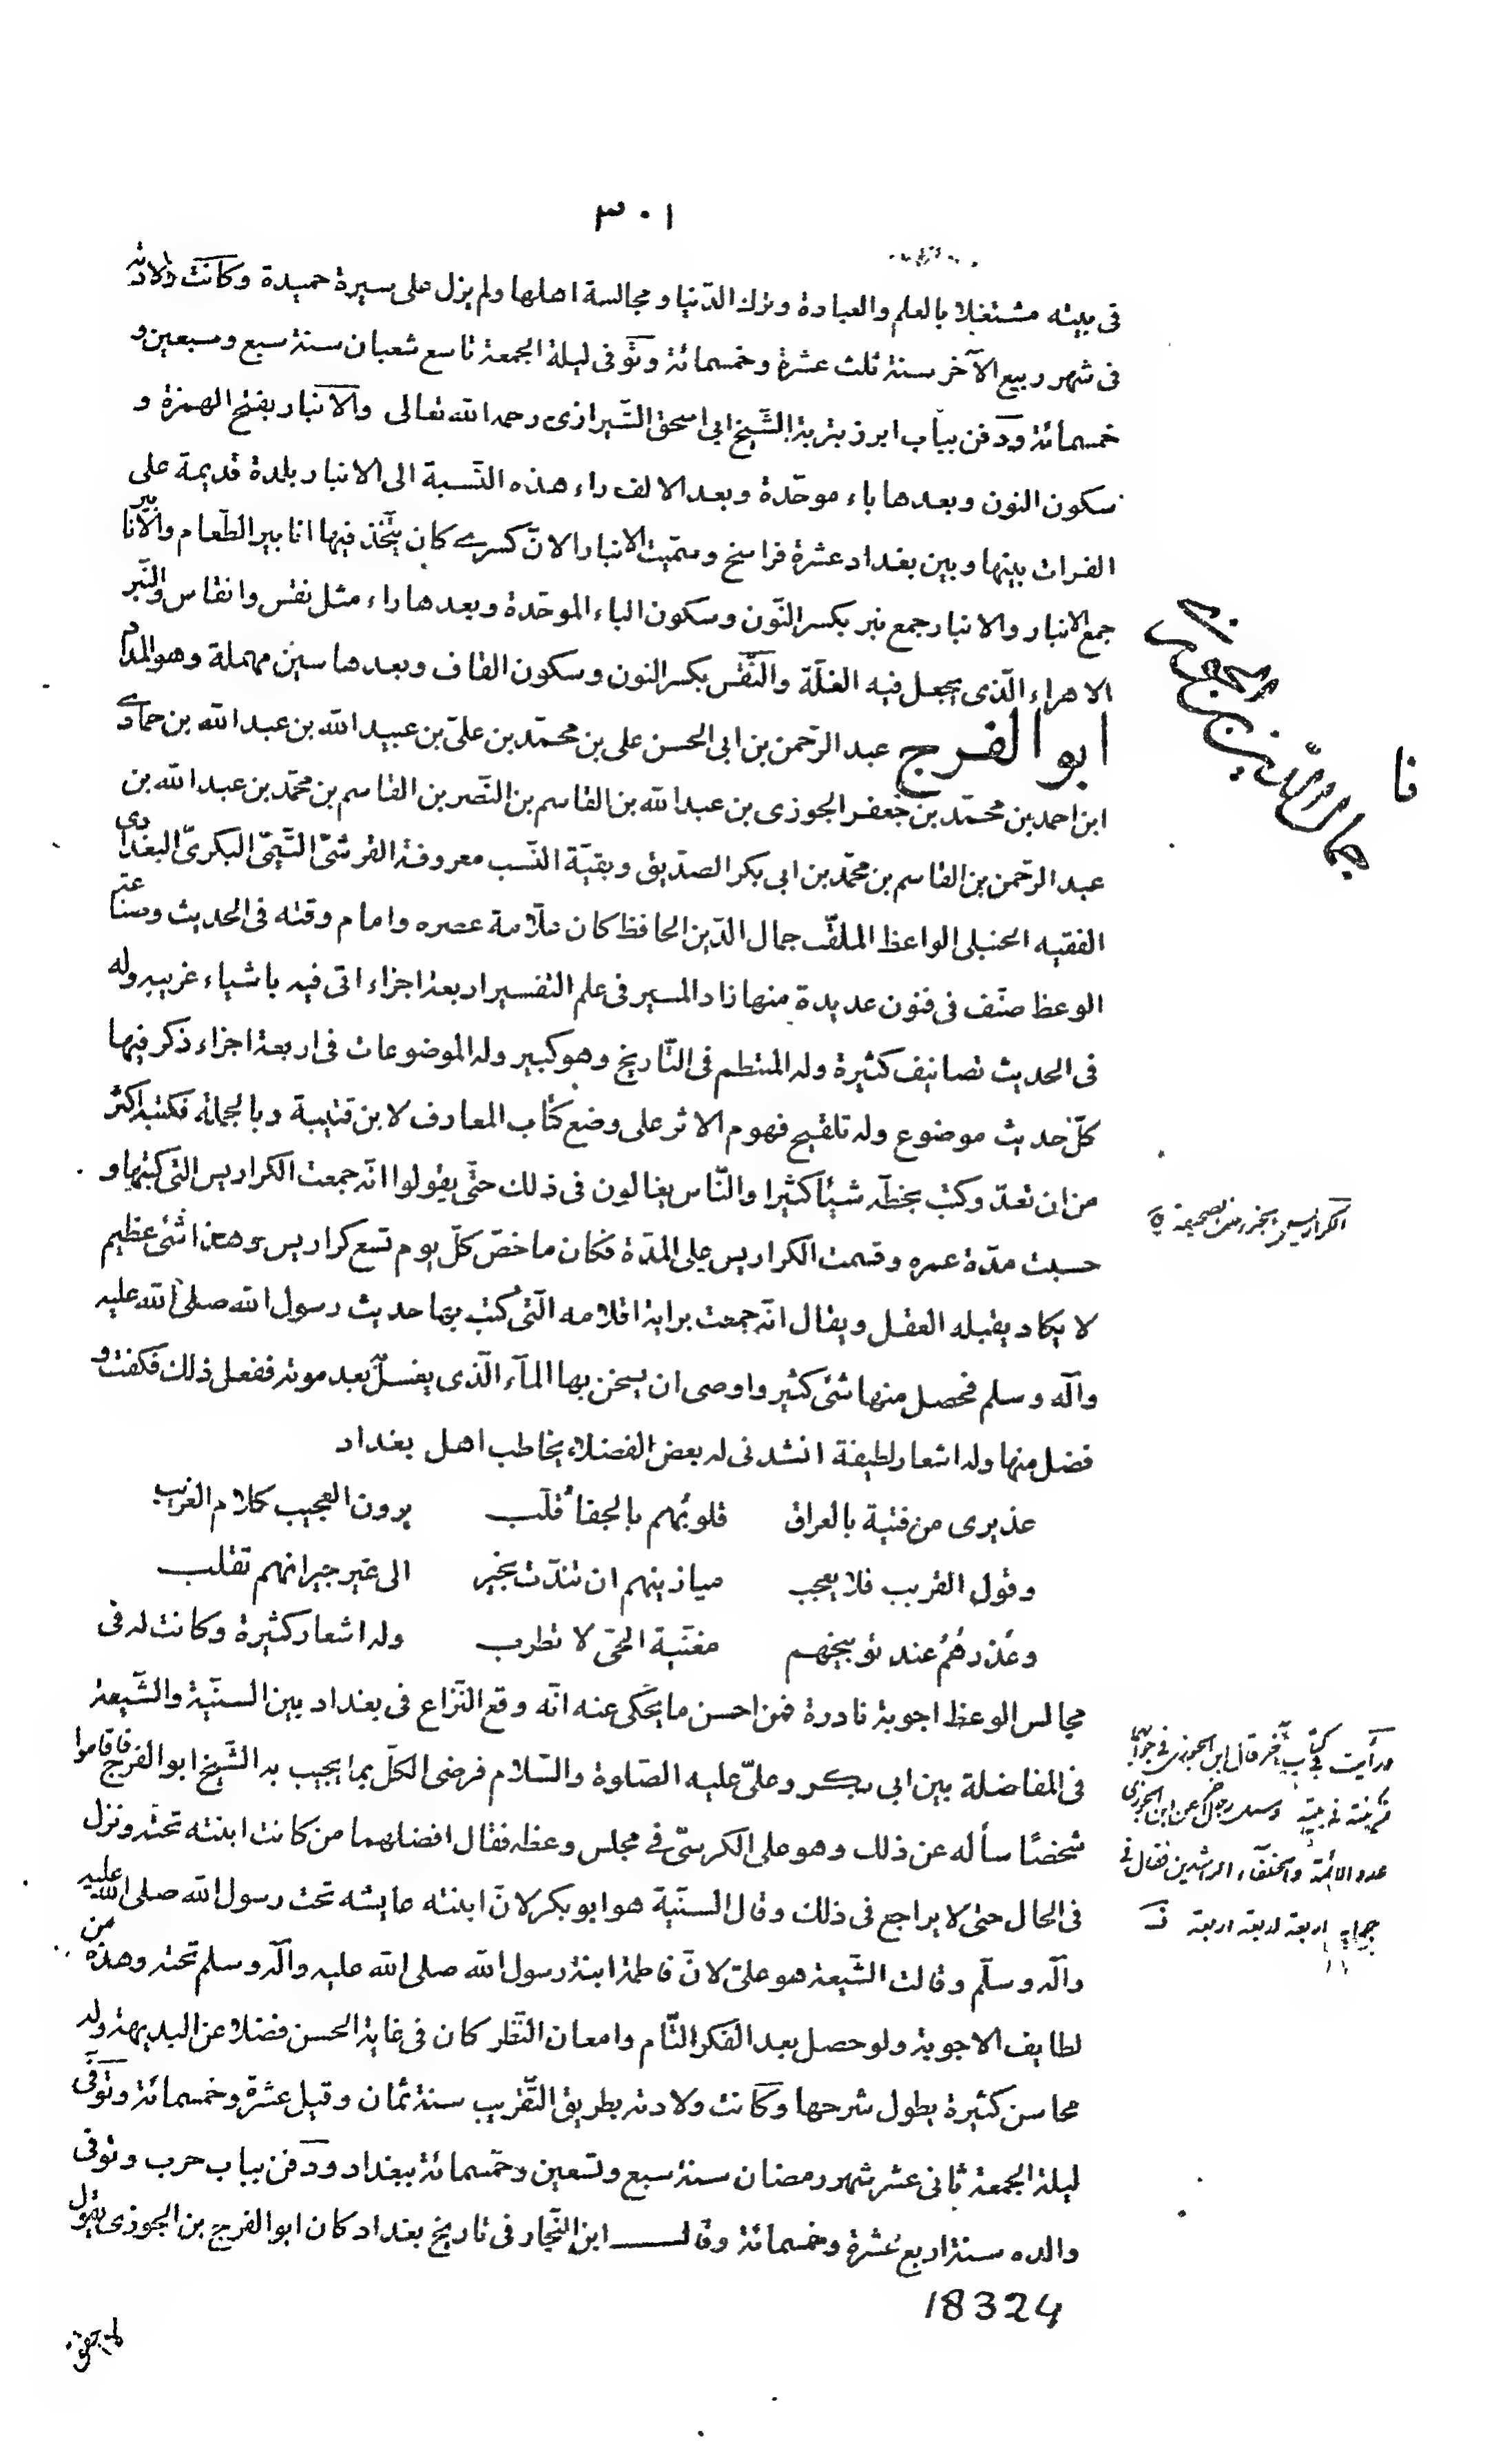 ٣٠١
فى بيته مشتغلا بالعلم والعبادة وترك الدّنيا ومجالسة اهلها ولم يزل على سيرة حميدة وكانت ولادته
فى شهر ربيع الآخر سنة ثلث عشرة وخمسمائة وتوفى ليلة الجمعة تاسع شعبان سنة سبع وسبعين و
خمسمائة ودفن بباب ابرز بتربة الشّيخ ابى اسحق الشّيرازى رحمه الله تعالى والانبار بفتح الهمزة و
سكون النون وبعدها باء موحّدة وبعد الالف راء هذه النّسبة الى الانبار بلدة قديمة على
الفرات بينها وبين بغداد عشرة فراسخ وسمّيت الانبار لانّ كسرى كان يتّخذ فيها انابير الطّعام والانابير
جمع الانبار والانبار جمع نبر بكسر النّون وسكون الباء الموحّدة وبعدها راء مثل نقس وانقاس والنّبر
الاهراء الّذى يجعل فيه الغلّة والنّقس بكسر النون وسكون القاف وبعدها سين مهملة وهو المداد
ابو الفرج عبد الرّحمن بن ابى الحسن على بن محمّد بن علىّ بن عبيد الله بن عبد الله بن حمادى
ابن احمد بن محمّد بن جعفر الجوزى بن عبد الله بن القاسم بن النّضر بن القاسم بن محمّد بن عبد الله بن
عبد الرّحمن بن القاسم بن محمّد بن ابى بكر الصدّيق وبقيّة النّسب معروفة القرشىّ التّيمىّ البكرىّ البغدادى
الفقيه الحنبلى الواعظ الملقّب جمال الدّين الحافظ كان علّامة عصره وامام وقته فى الحديث وصناعة
الوعظ صنّف فى فنون عديدة منها زاد المسير فى علم التفسير اربعة اجزاء اتى فيه باشياء غريبه وله
فى الحديث تصانيف كثيرة وله المنتظم فى التّاريخ وهو كبير وله الموضوعات فى اربعة اجزاء ذكر فيها
كلّ حديث موضوع وله تلقيح فهوم الاثر على وضع كتاب المعارف لابن قتيبة وبالجملة فكتبه اكثر
من ان تعدّ وكتب بخطّه شيئا كثيرا والنّاس يغالون فى ذلك حتّى يقولوا انّه جمعت الكراريس التى كتبها و
حسبت مدّة عمره وقسمت الكراريس على المدّة فكان ما خصّ كلّ يوم تسع كراريس وهذا شئ عظيم
لا يكاد يقبله العقل ويقال انّه جمعت براية اقلامه الّتى كتب بها حديث رسول الله صلى الله عليه
وآله وسلم فحصل منها شئ كثير واوصى ان يسخن بها المآء الّذى يغسل به بعد موته ففعل ذلك فكفت و
فضل منها وله اشعار لطيفة انشدنى له بعض الفضلاء يخاطب اهل بغداد
عذيرى من فتية بالعراق قلوبُهم بالجفا قلّب يرون العجيب كلام الغريب
وقول القريب فلا يعجب ميازيبهم ان تندّت بخير الى غير جيرانهم تقلب
وعُذرهُم عند توبيخهم مغنّية الحىّ لا تطرب وله اشعار كثيرة وكانت له فى
مجالس الوعظ اجوبة نادرة فمن احسن ما يحكى عنه انّه وقع النّزاع فى بغداد بين السنّية والشّيعة
فى المفاضلة بين ابى بكر وعلىّ عليه الصّلوة والسّلام فرضى الكلّ بما يجيب به الشّيخ ابو الفرج فاقاموا
شخصًا سأله عن ذلك وهو على الكرسىّ فى مجلس وعظه فقال افضلهما من كانت ابنته تحته ونزل
فى الحال حتى لا يراجع فى ذلك وقال السنّية هو ابو بكر لانّ ابنته عايشه تحت رسول الله صلى الله عليه
وآله وسلّم وقالت الشّيعة هو علىّ لانّ فاطمة ابنة رسول الله صلى الله عليه وآله وسلم تحته وهذه من
لطايف الاجوبة ولو حصل بعد الفكر التّام وامعان النّظر كان فى غاية الحسن فضلا عن البديهة وله
محاسن كثيرة يطول شرحها وكانت ولادته بطريق التّقريب سنة ثمان وقيل عشرة وخمسمائة وتوفّى
ليلة الجمعة ثانى عشر شهر رمضان سنة سبع وتسعين وخمسمائة ببغداد ودفن بباب حرب وتوفى
والده سنة اربع عشرة وخمسمائة وقال ابن النّجار فى تاريخ بغداد كان ابو الفرج بن الجوزى يقول
18324
جمال الدّين بن الجوزى
ورأيت فى كتاب آخر قال ابن الجوزى فى جوابها
من بنته فى بيته وسئل رجل عن ابن الجوزى
عدد الائمّة والخلفآء الراشدين فقال فى
جوابه اربعة اربعة اربعة